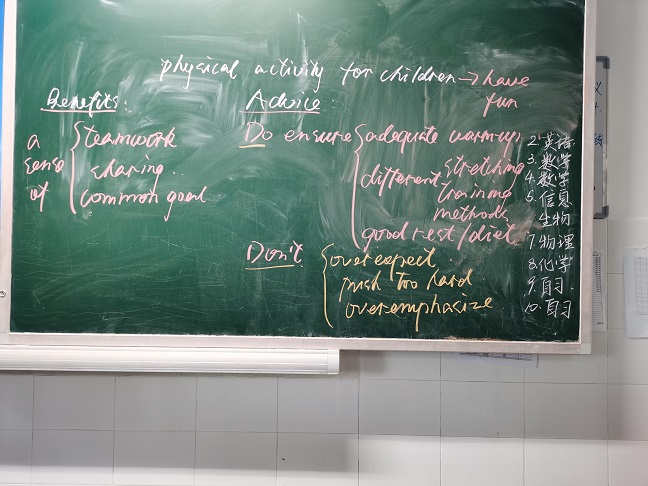 physical activity for children → have
fun
Benefits:
a
sense
of
teamwork
sharing..
common goal
Advice:
Do ensure
adequate warm-up
stretching
different training
methods
good rest/diet
Don't
overexpect
push too hard
overemphasize
2. 英语
3. 数学
4. 数学
5. 信息
生物
7. 物理
8. 化学
9. 自习
10. 自习